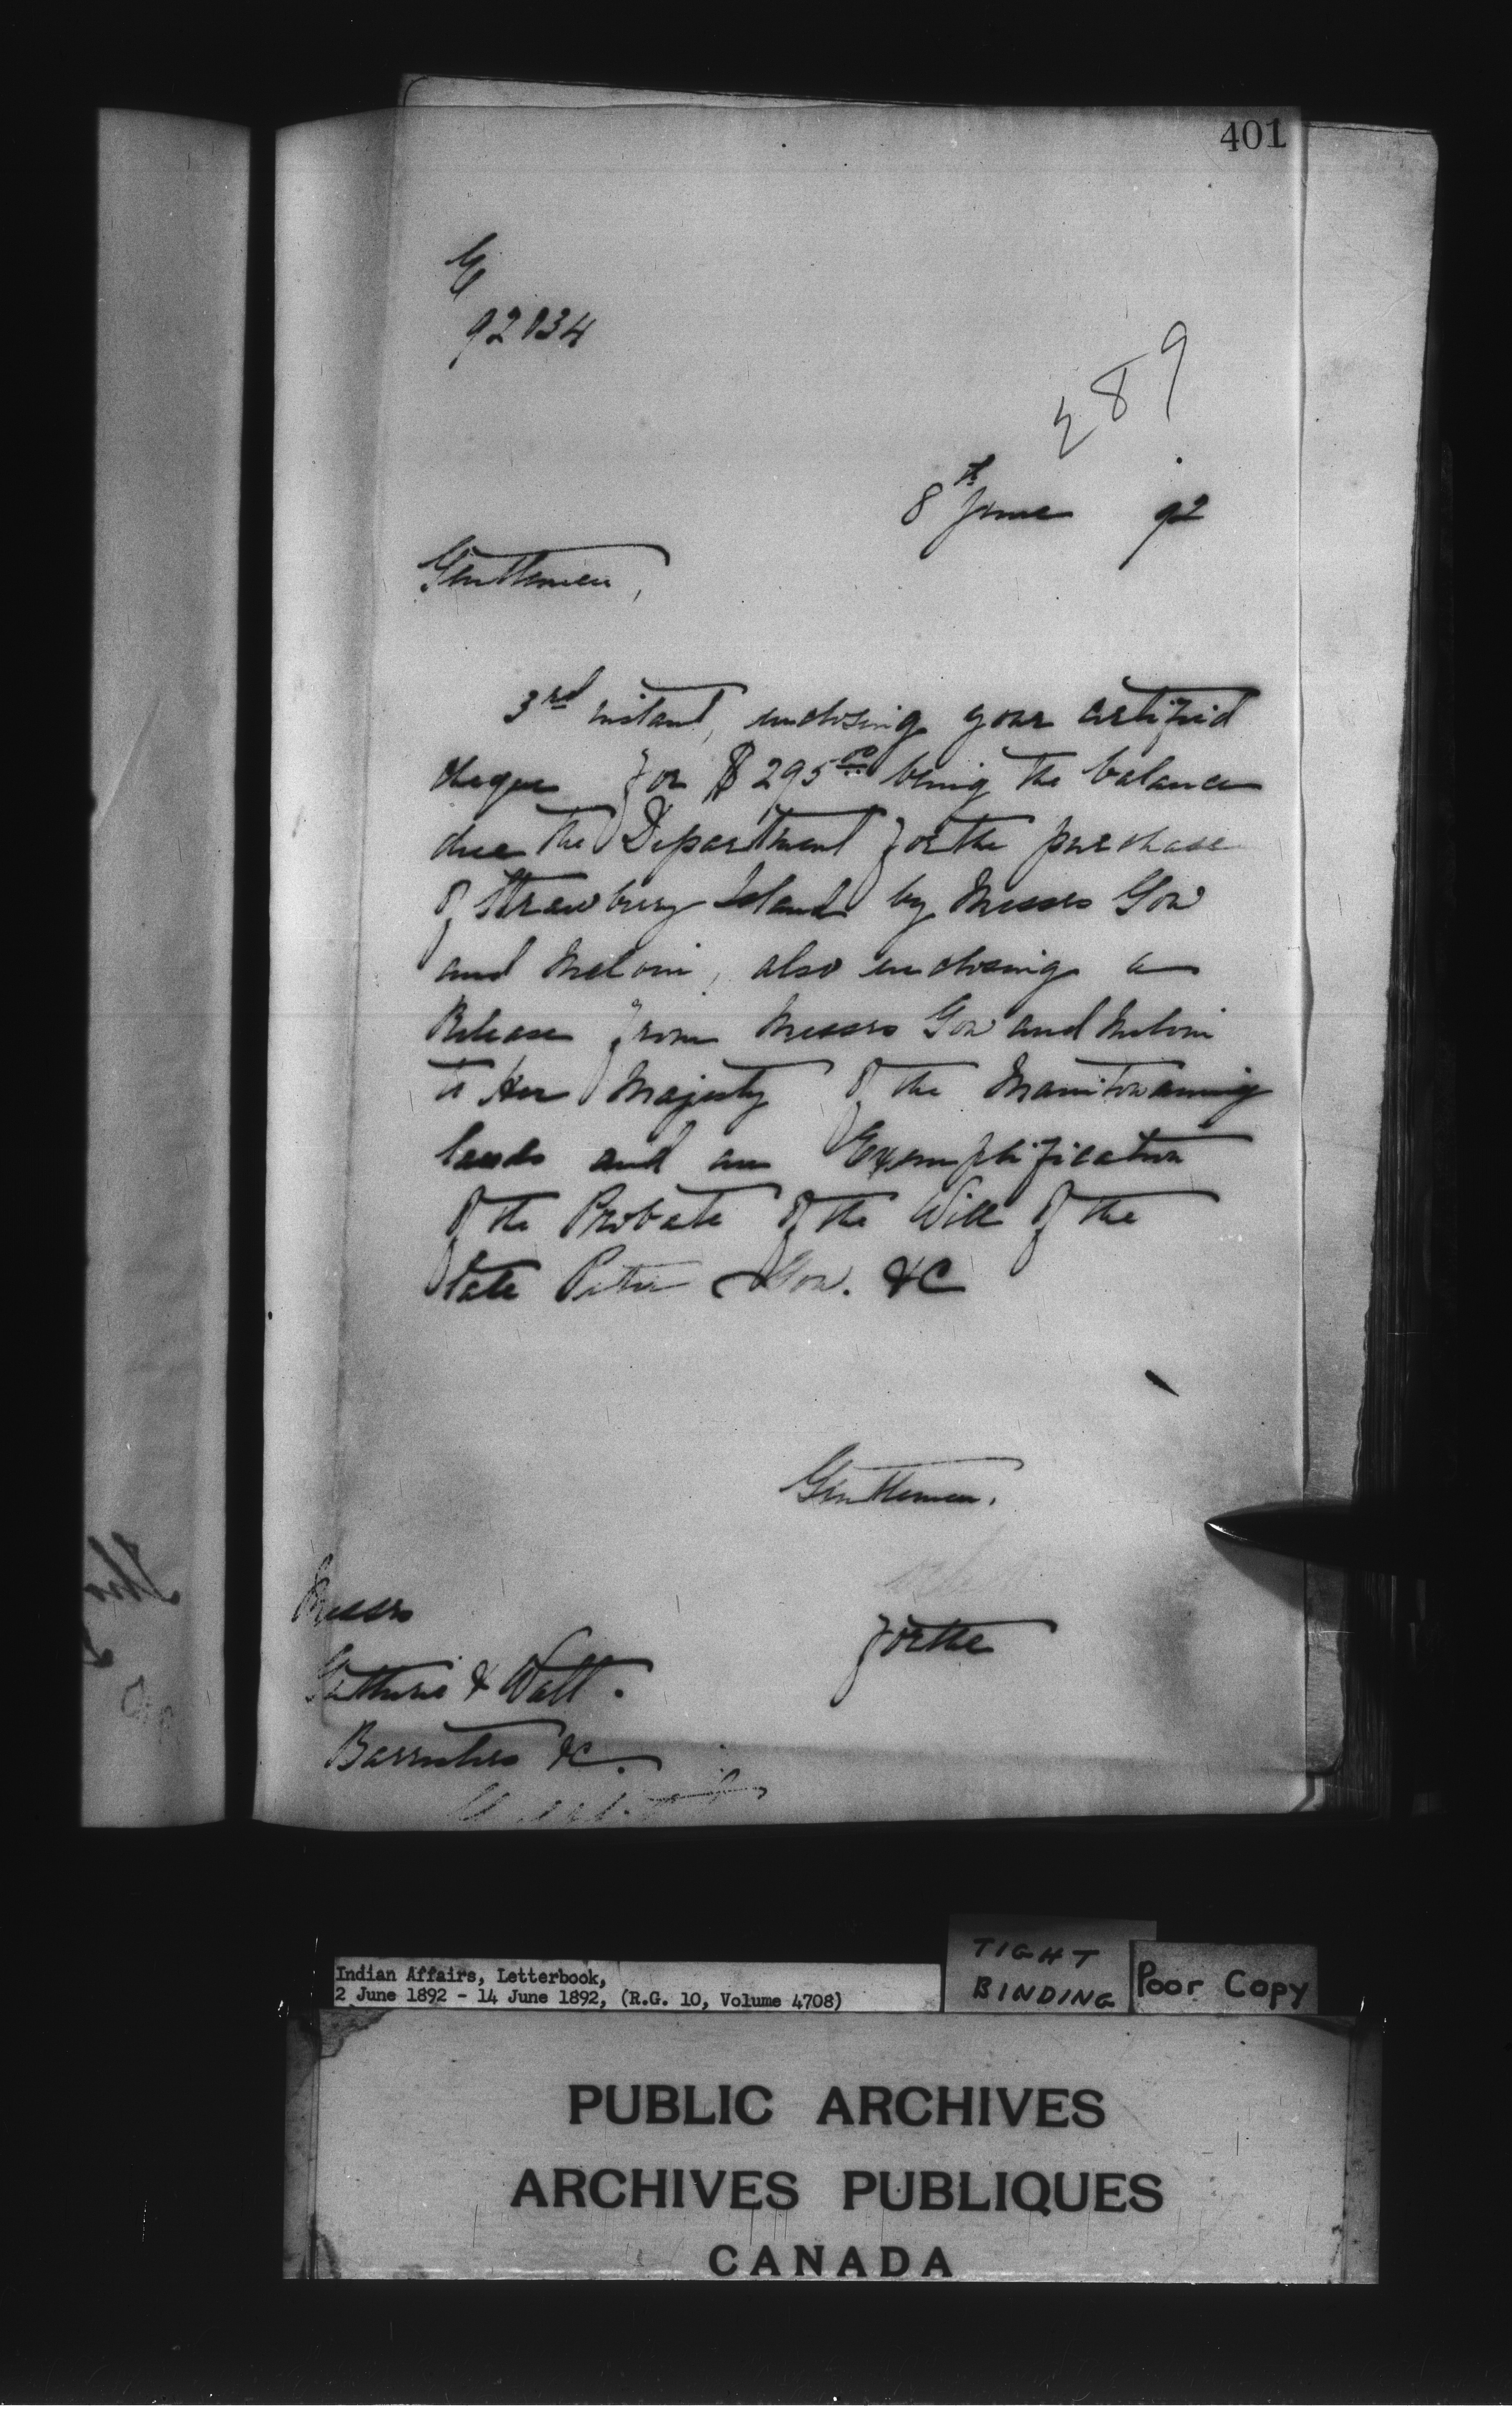 401
92134
289
8th June 92
Gentlemen,
3rd instant, enclosing your certified
cheque for $295.00 being the balance
due the Department for the purchase
of Strawberry Island by Messrs Gow
and Melvin, also enclosing a
Release from Messrs Gow and Melvin
to Her Majesty of the Manitowaning
lands and an Exemplification
of the Probate of the Will of the
late Peter Gow. &C
Gentlemen.
for the
Messrs
Guthrie & Watt.
Barristers &c.
Indian Affairs, Letterbook,
2 June 1892 - 14 June 1892, (R.G. 10, Volume 4708)
TIGHT
BINDING
Poor Copy
PUBLIC ARCHIVES
ARCHIVES PUBLIQUES
CANADA